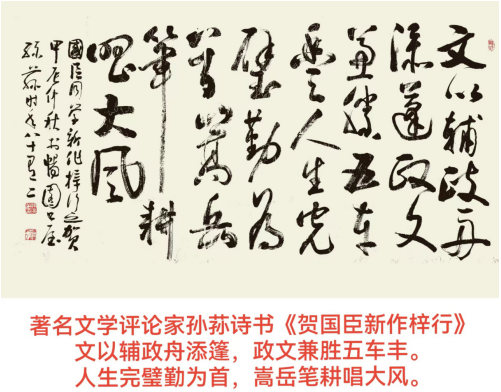 文以輔政舟
添蓬政文
兼勝五车
丰人生完
璧勤为
首嵩岳
筆耕
唱大风
國臣同学新作梓行之贺
甲辰仲秋
孙荪时年八十有二
著名文学评论家孙荪诗书《贺国臣新作梓行》
文以辅政舟添篷，政文兼胜五车丰。
人生完璧勤为首，嵩岳笔耕唱大风。